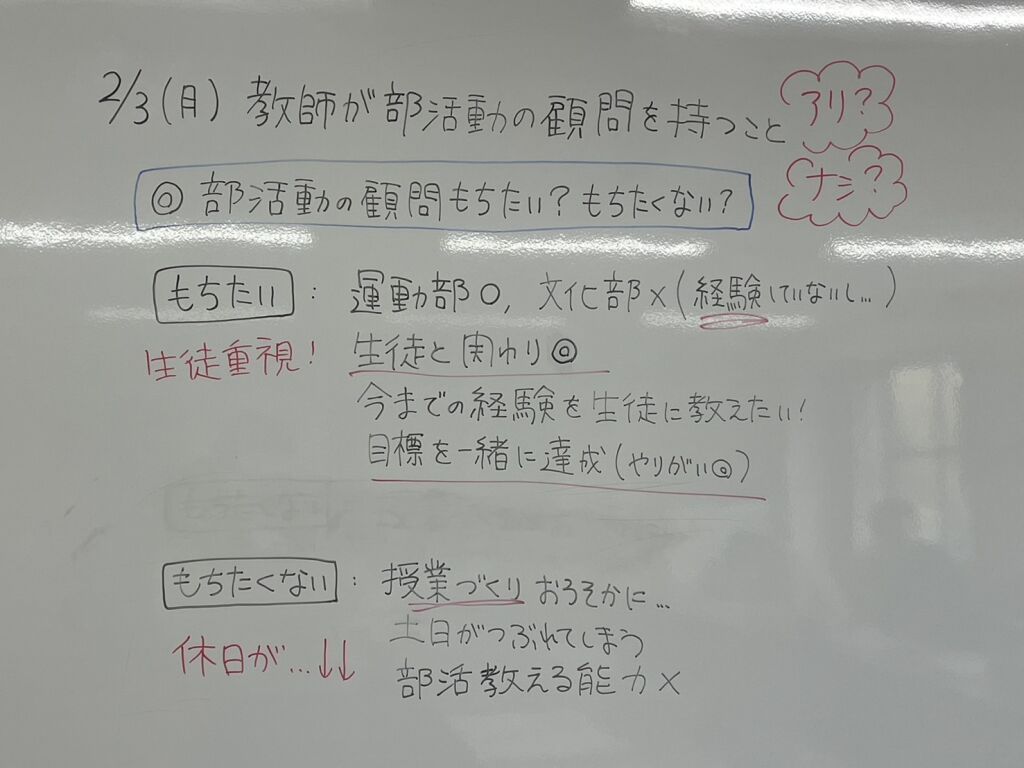 2/3(月) 教師が部活動の顧問を持つこと アリ?
ナシ?
◎ 部活動の顧問もちたい?もちたくない?
もちたい : 運動部○, 文化部×(経験していないし…)
生徒重視! 生徒と関わり◎
今までの経験を生徒に教えたい!
目標を一緒に達成(やりがい◎)
もちたくない : 授業づくりおろそかに…
土日がつぶれてしまう
休日が…↓↓
部活教える能力×